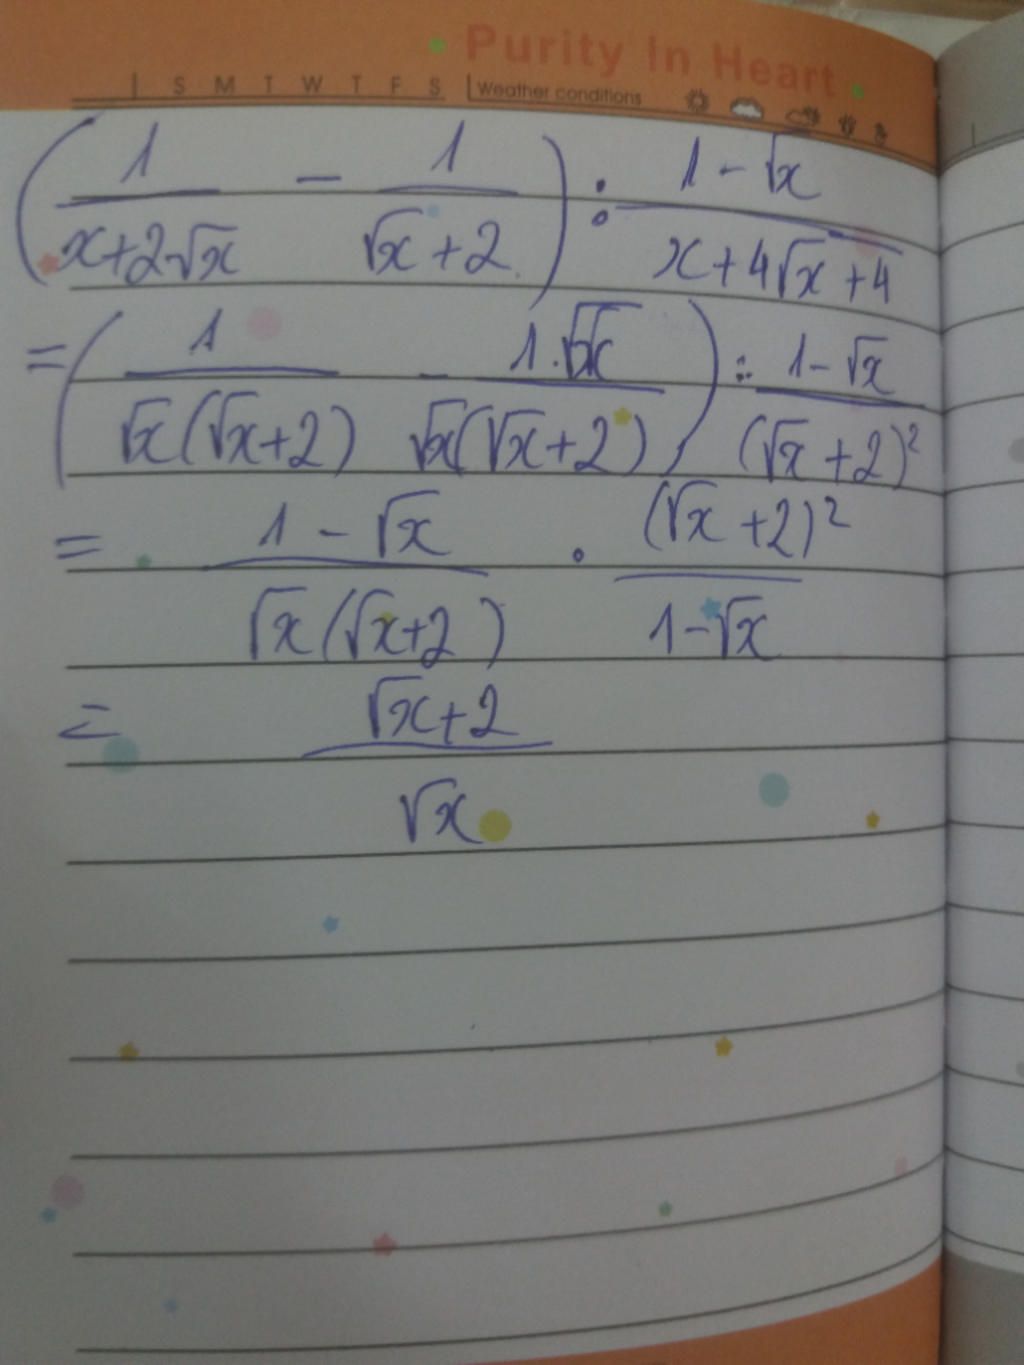 Purity In Heart
S M T W T F S Weather conditions
(1/(x+2√x) - 1/(√x+2)) : (1-√x)/(x+4√x+4)
= (1/(√x(√x+2)) - (1.√x)/(√x(√x+2))) : (1-√x)/(√x+2)²
= (1-√x)/(√x(√x+2)) . (√x+2)²/(1-√x)
= (√x+2)/√x